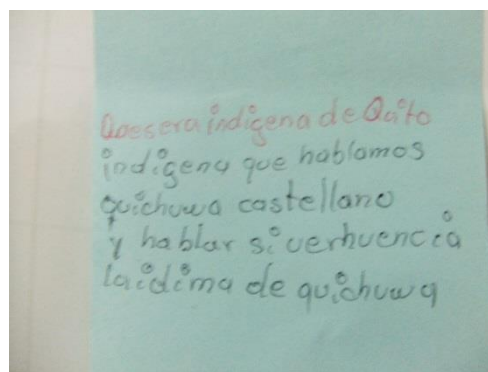 Que sera indigena de Quito
indigena que hablamos
quichuwa castellano
y hablar si verhuencia
la idima de quichuwa